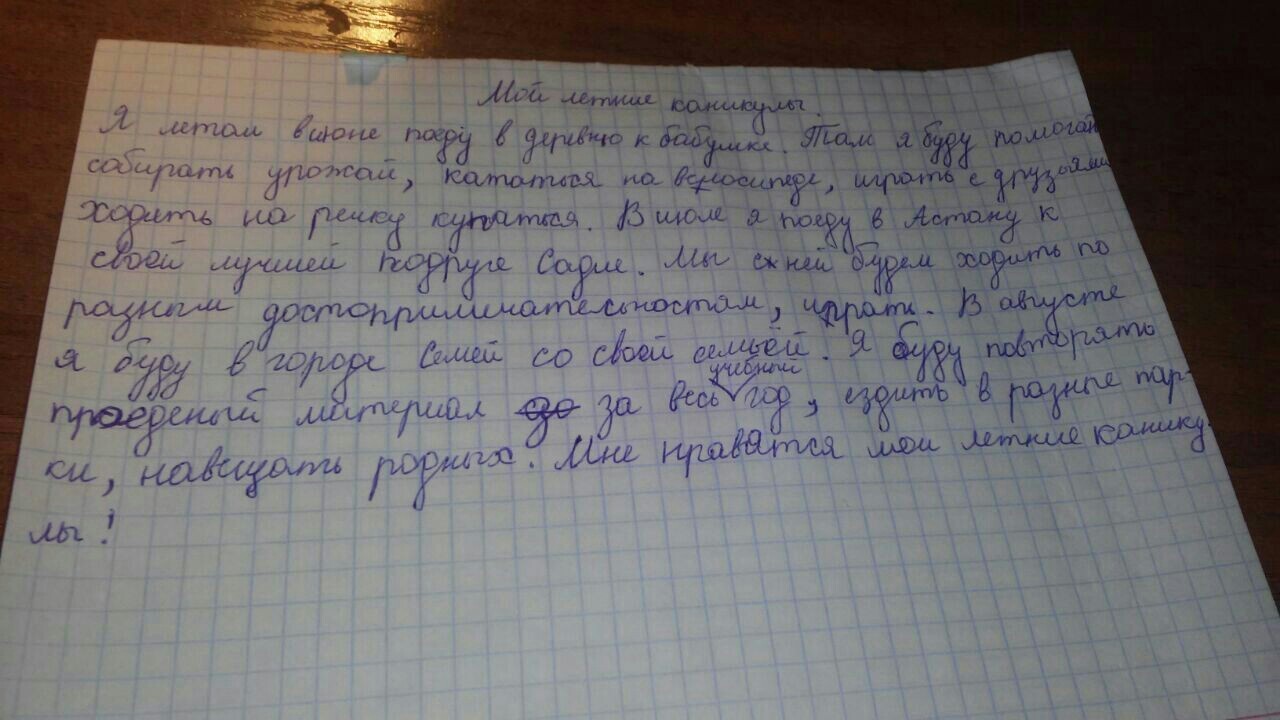 Мой летние каникулы.
Я летом в июне поеду в деревню к бабушке. Там я буду помогать
собирать урожай, кататься на велосипеде, играть с друзьями
ходить на речку купаться. В июле я поеду в Астану к
своей лучшей подруге Садле. Мы с ней будем ходить по
разным достопримичательностям, играть. В августе
я буду в городе Семей со своей семьёй. Я буду повторять
проеденый материал за весь учебный год, ездить в разные пар-
ки, навещать родных. Мне нравятся мои летние канику-
лы!